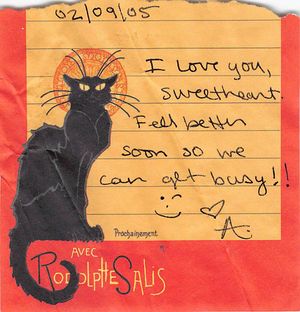 02/09/05
I love you,
sweetheart.
Feel better
soon so we
can get busy!!
A.
Prochainement
AVEC
RODOLPHE SALIS